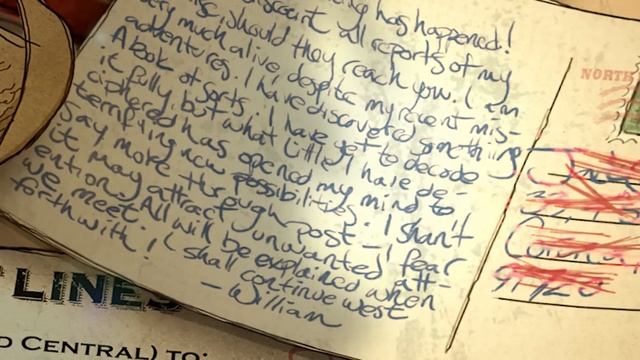 ing has happened!
discount all reports of my
should they reach you. I am
very much alive despite my recent mis-
adventures. I have discovered something
A book of sorts. I have yet to decode
it fully, but what little I have de-
ciphered has opened my mind to
terrifying new possibilities. I shan't
say more through post - I fear
it may attract unwanted att-
ention. All will be explained when
we meet. I shall continue west
forthwith!
- William
NORTH
LINES
CENTRAL) TO: